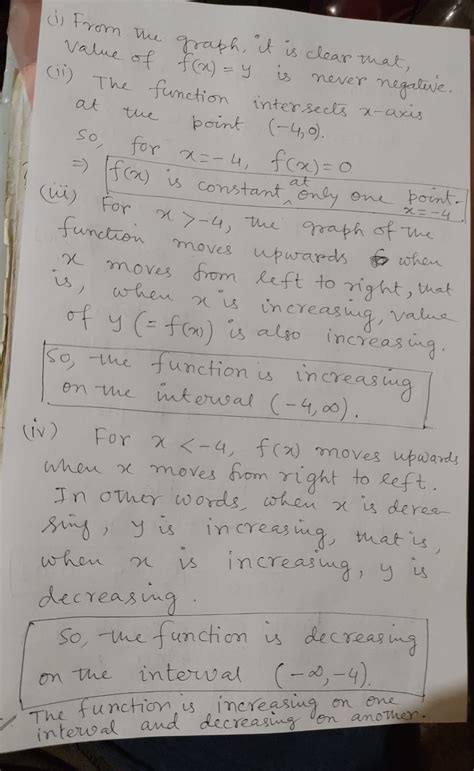 (i) From the graph, it is clear that,
value of f(x) = y is never negative.
(ii) The function intersects x-axis
at the point (-4,0).
So, for x = -4, f(x) = 0
⇒ f(x) is constant at only one point.
x = -4
(iii) For x > -4, the graph of the
function moves upwards when
x moves from left to right, that
is, when x is increasing, value
of y (= f(x)) is also increasing.
So, the function is increasing
on the interval (-4, ∞).
(iv) For x < -4, f(x) moves upwards
when x moves from right to left.
In other words, when x is decrea-
sing, y is increasing, that is,
when x is increasing, y is
decreasing.
So, the function is decreasing
on the interval (-∞, -4).
The function is increasing on one
interval and decreasing on another.